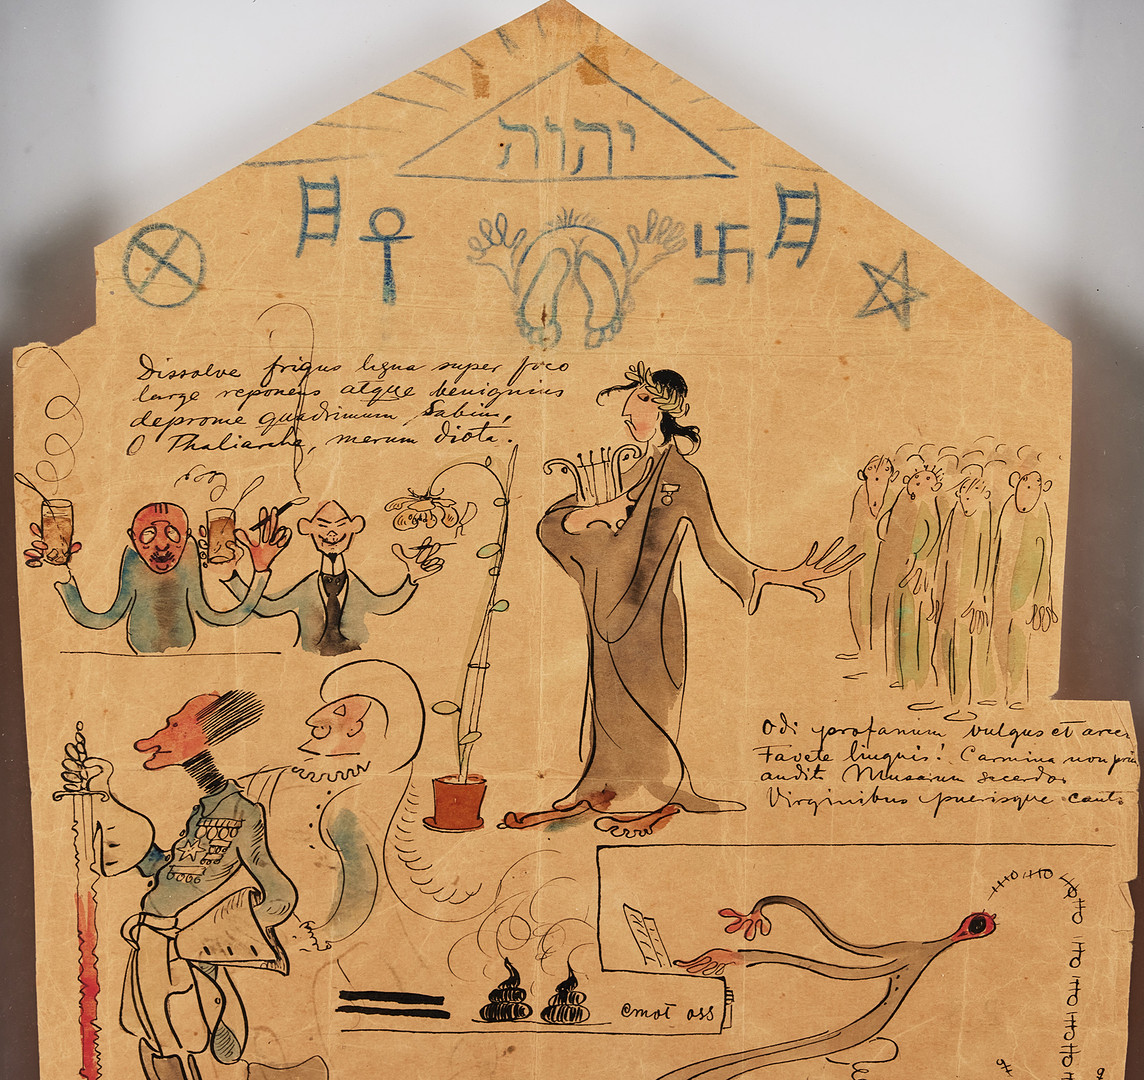 יהוה
Dissolve frigus ligna super foco
large reponens atque benignius
deprome quadrimum Sabina,
O Thaliarche, merum diota.
Odi profanum vulgus et arceo
Favete linguis! Carmina non priu
audita Musarum sacerdos
Virginibus puerisque canto
cmot oss